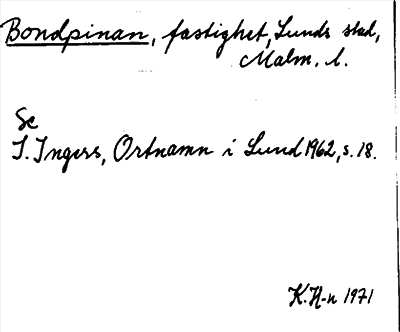 Bondpinan, fastighet, Lunds stad,
Malm. l.
Se
I. Ingers, Ortnamn i Lund 1962, s. 18.
K. H-n 1971